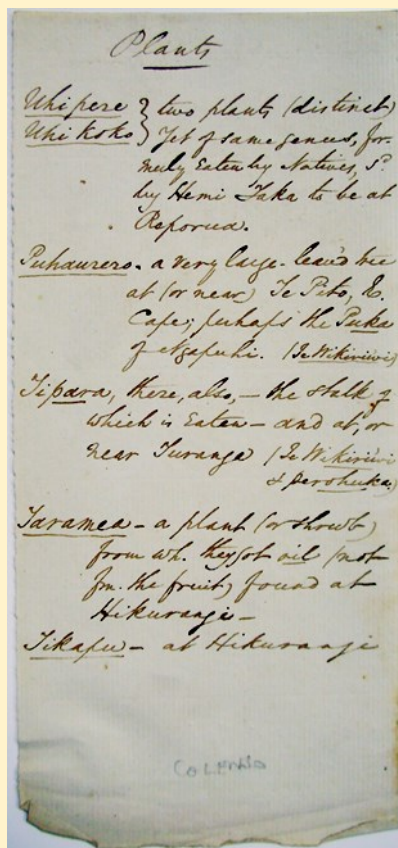 Plants
Uhipere } two plants (distinct)
Uhikoko } Yet of same genus, for-
merly Eaten by Natives, sd.
by Hemi Taka to be at
Reporua.
Puhaurero - a very large-leav'd tree
at (or near) Te Pito, E.
Cape; perhaps the Puka
of Ngapuhi. (Te Wikiriwi)
Tipara, there, also, - the stalk of
which is Eaten - and at, or
near Turanga (Te Wikiriwi
& perohuka.)
Taramea - a plant (or shrub)
from wh. they got oil (not
fm. the fruit) found at
Hikurangi -
Tikapu - at Hikurangi
COLENSO